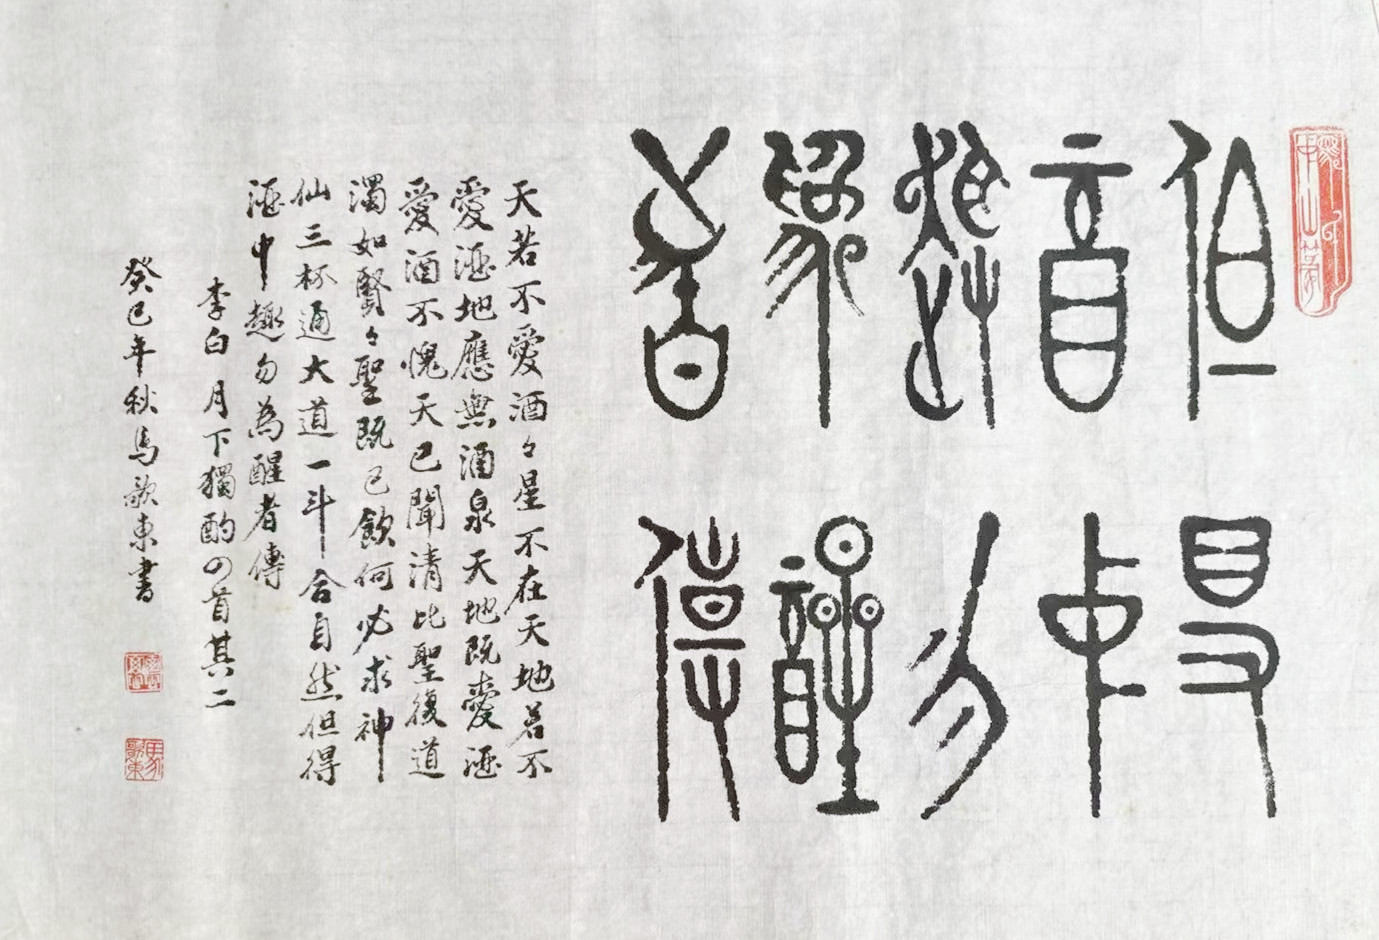 但得
酒中
趣勿
為醒
者傳
天若不愛酒々星不在天地若不
愛酒地應無酒泉天地既愛酒
愛酒不愧天已聞清比聖復道
濁如賢々聖既已飲何必求神
仙三杯通大道一斗合自然但得
酒中趣勿為醒者傳
李白月下獨酌四首其二
癸巳年秋馬歌東書
馬歌東